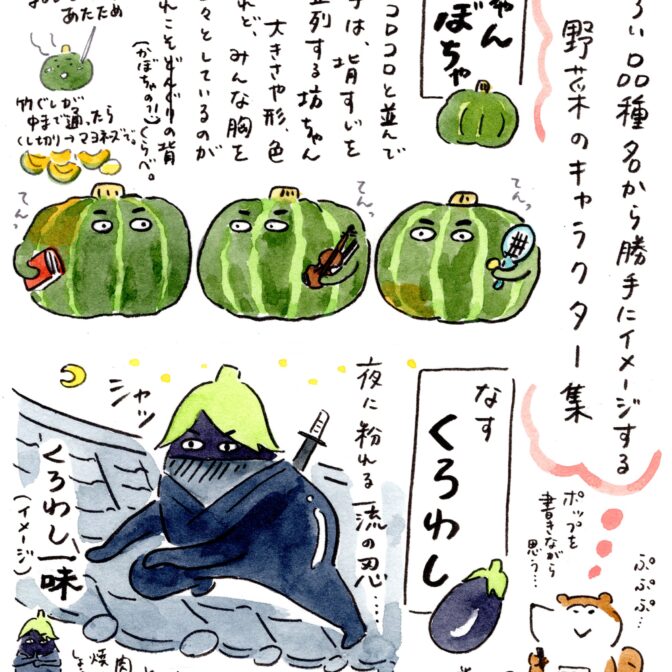 ろい品種名から勝手にイメージする
野菜のキャラクター集
ちゃん
ぼちゃ
コロコロと並んで
は、背すじを
並列する坊ちゃん
大きさや形、色
れど、みんな胸を
々としているのが
んこそどんぐりの背
(かぼちゃの?!)くらべ。
あたため
竹ぐしが
中まで通ったら
くし切りつマヨネーズで。
てんっ
てんっ
てんっ
なす
くろわし
夜に紛れる
一流の忍…
シャッ
くろわし一味
(イメージ)
ポップを
書きながら
思う…
ぷぷぷ…
焼
肉